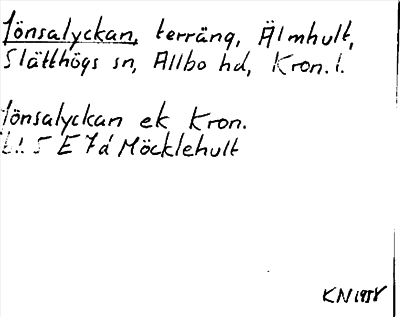 Jönsalyckan, terräng, Älmhult,
Slätthögs sn, Allbo hd, Kron. l.
Jönsalyckan ek Kron.
5 E 7d Möcklehult
KN 1958